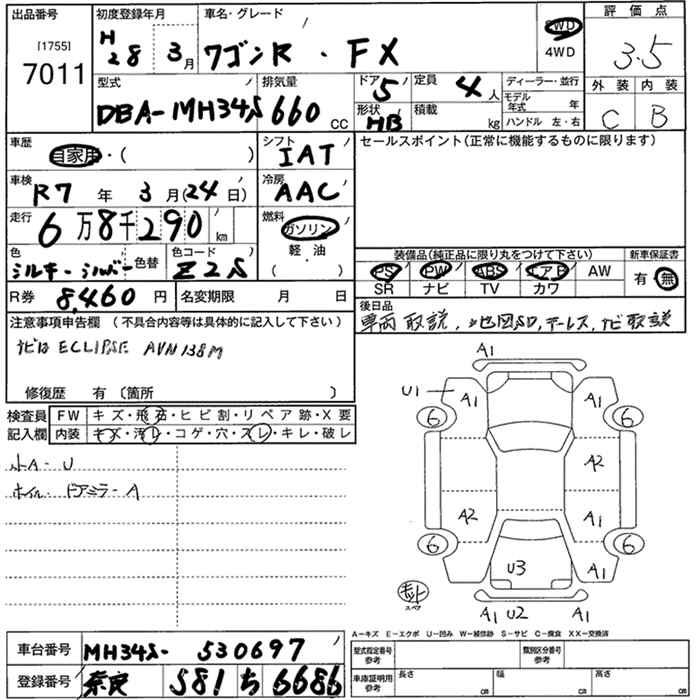 出品番号
[1755]
7011
初度登録年月
H
28 3月
車名・グレード
ワゴンR・FX
2WD
4WD
評価点
3.5
外装 内装
C B
型式
DBA-MH34S
排気量
660 CC
ドア 5
形状 HB
定員 4人
積載 kg
ディーラー・並行
モデル年式 年
ハンドル 左・右
車歴
自家用・( )
シフト
IAT
セールスポイント(正常に機能するものに限ります)
車検
R7年 3月(24日)
冷房
AAC
走行
6万8千290 km
燃料
ガソリン
軽・油
( )
色
ミルキーシルバー
色替
色コード
Z2S
装備品(純正品に限り丸をつけて下さい)
PS PW ABS エアB AW
SR ナビ TV カワ
新車保証書
有・無
R券 8,460円
名変期限 月 日
後日品
車両取説、地図SD、ナビ取説
注意事項申告欄(不具合内容等は具体的に記入して下さい)
ナビは ECLIPSE AVN138M
修復歴 有 〔箇所 〕
検査員記入欄
FW キズ・飛石・ヒビ割・リペア跡・X要
内装 キズ・汚レ・コゲ・穴・スレ・キレ・破レ
小A・U
ホイル・ドアミラーA
A1
U1 A1 A1
6 6
A2
A2 A1
6 6
U3 A1
キット
スペア
A1 U2 A1
A-キズ E-エクボ U-凹み W-補修跡 S-サビ C-腐食 XX-交換済
車台番号 MH34S-530697
登録番号 奈良 581 ち 6686
型式指定番号
参考
類別区分番号
参考
車庫証明用
参考
長さ cm
幅 cm
高さ cm